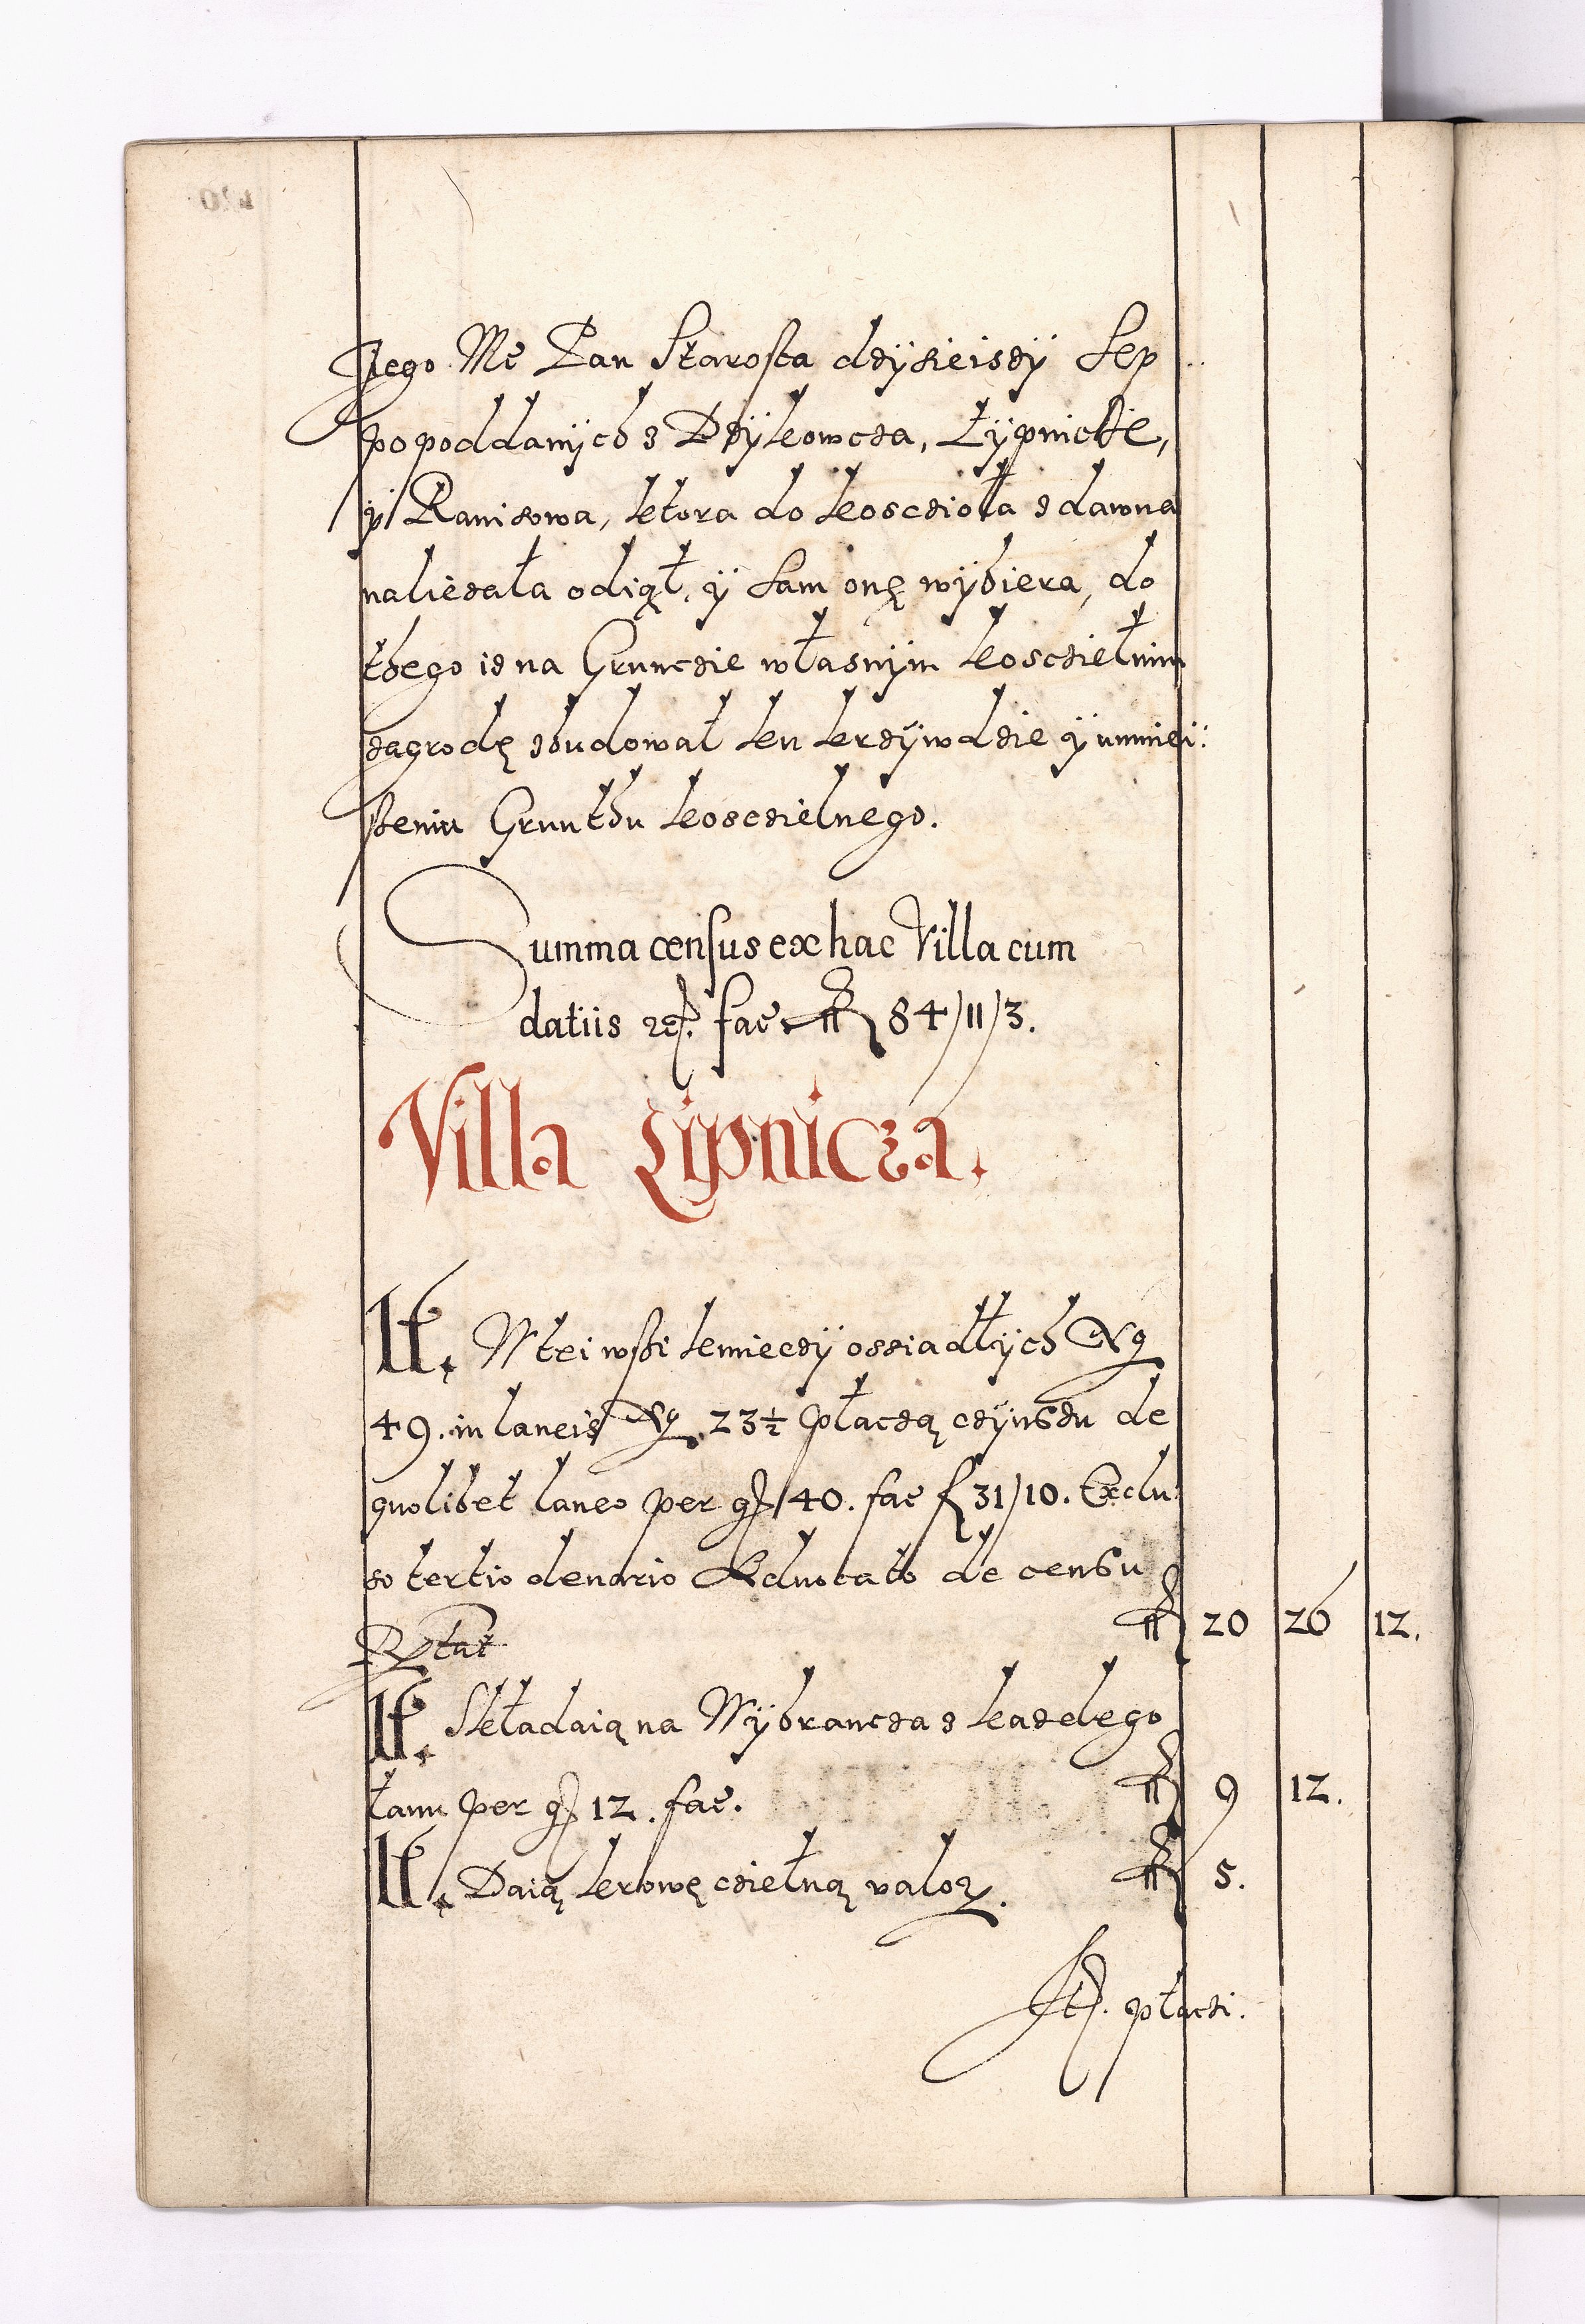 Jego Mć Pan Starosta dzÿsieiszÿ Sep
po poddanÿch z Dzÿkowcza, Łÿpnicze,
ÿ Raniszowa, ktora do koscziołła zdawna
naliezała odiął, ÿ sam onę wÿbiera, do
thego iz na Grunczie własnÿm koscziełnim
zagrodę zbudował ku krzÿwdzie ÿ umniei:
szeniu Grunthu kosczielnego.
Summa census ex hac Villa cum
datiis 84/11/3.
Villa Lipnicza.
It. W tei wszi kmieczÿ ossiadłÿch Nº
49. in laneis Nº 23½ płaczą czÿnszu de
quolibet laneo per gr 40. fac f 31/10. Exclu:
so tertio denario Advocato de censu
Rstat f 20 26 12.
It. Składaią na Wÿbrancza z kazdego
łanu per gr 12. fac. f 9 12.
It. Daią krowę czielną valoʒ. f 5.
It. płaczi.